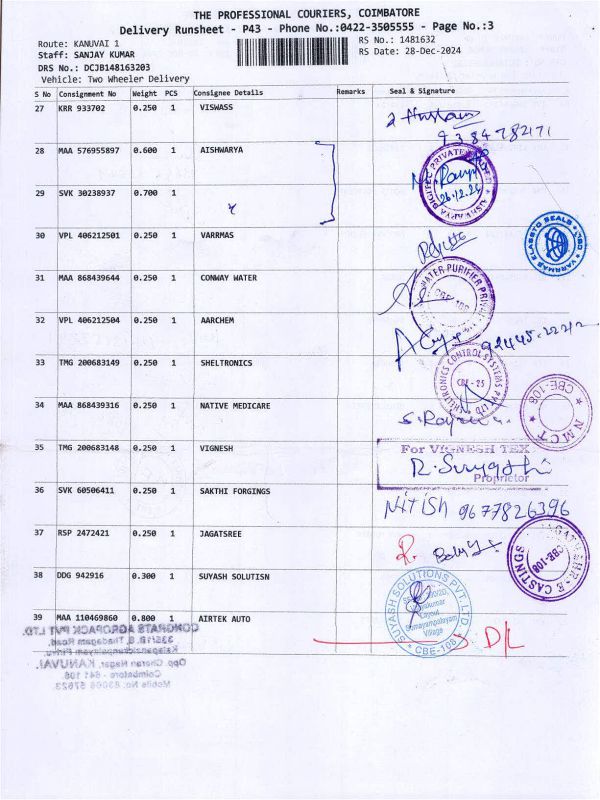 THE PROFESSIONAL COURIERS, COIMBATORE
Delivery Runsheet - P43 - Phone No.:0422-3505555 - Page No.:3
Route: KANUVAI 1
RS No.: 1481632
Staff: SANJAY KUMAR
RS Date: 28-Dec-2024
DRS No.: DCJB148163203
Vehicle: Two Wheeler Delivery
S No Consignment No Weight PCS Consignee Details Remarks Seal & Signature
27 KRR 933702 0.250 1 VISWASS
9384782171
28 MAA 576955897 0.600 1 AISHWARYA
29 SVK 30238937 0.700 1
30 VPL 406212501 0.250 1 VARRMAS
31 MAA 868439644 0.250 1 CONWAY WATER
WATER PURIFIER
32 VPL 406212504 0.250 1 AARCHEM
92445-22212
33 TMG 200683149 0.250 1 SHELTRONICS
SHELTRONICS CONTROL SYSTEMS PVT LTD
CBE - 25
34 MAA 868439316 0.250 1 NATIVE MEDICARE
CBE-108
N M C T
35 TMG 200683148 0.250 1 VIGNESH
For VIGNESH TEX
Proprietor
36 SVK 60506411 0.250 1 SAKTHI FORGINGS
Nitish 9677826396
37 RSP 2472421 0.250 1 JAGATSREE
CASTINGS
CBE-108
38 DDG 942916 0.300 1 SUYASH SOLUTISN
SUYASH SOLUTIONS PVT. LTD.
Layout
Village
CBE-108
39 MAA 110469860 0.800 1 AIRTEK AUTO
D/L
CONGRATS AGROPACK PVT LTD.
KANUVAI.
Coimbatore - 641 108.